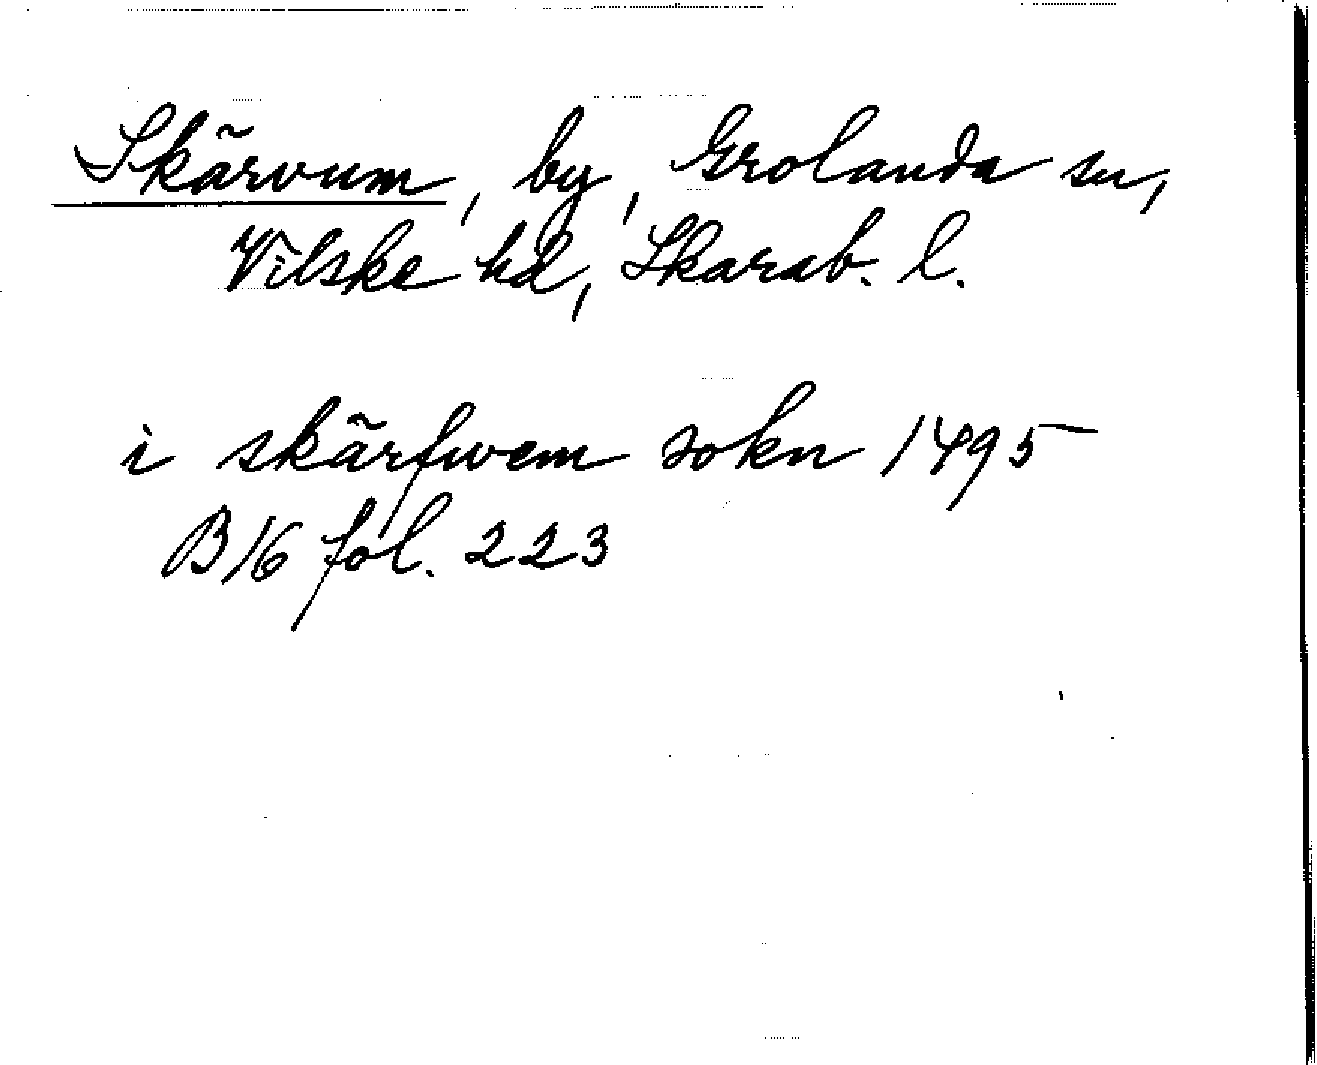 Skärvum, by, Grolanda sn,
Vilske hd, Skarab. l.
i skärfwem sokn 1495
B16 fol. 223